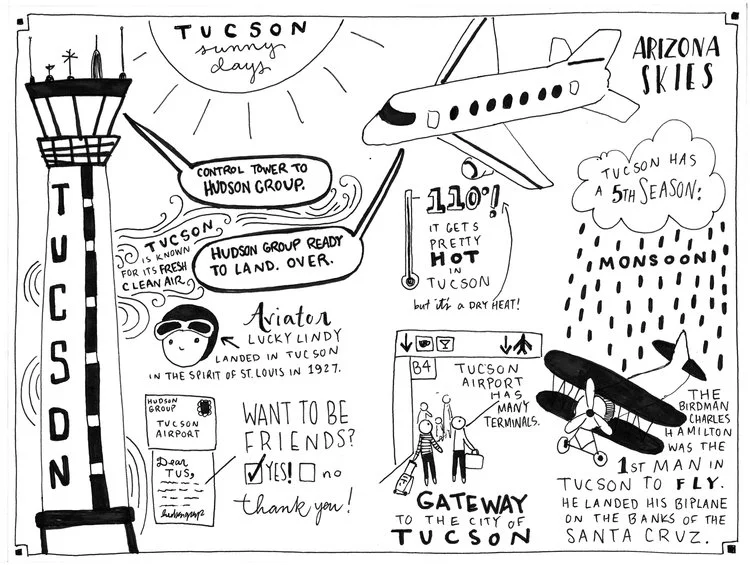 TUCSON
sunny
days
ARIZONA
SKIES
CONTROL TOWER TO
HUDSON GROUP.
TUCSON
IS KNOWN
FOR ITS FRESH
CLEAN AIR.
HUDSON GROUP READY
TO LAND. OVER.
110°!
IT GETS
PRETTY
HOT
IN
TUCSON
but it's a DRY HEAT!
TUCSON HAS
A 5TH SEASON:
MONSOON!
TUCSON
Aviator
LUCKY LINDY
LANDED IN TUCSON
IN THE SPIRIT OF ST. LOUIS IN 1927.
HUDSON
GROUP
TUCSON
AIRPORT
Dear
TUS,
WANT TO BE
FRIENDS?
YES! no
thank you!
B4
TUCSON
AIRPORT
HAS
MANY
TERMINALS.
GATEWAY
TO THE CITY OF
TUCSON
THE
BIRDMAN
CHARLES
HAMILTON
WAS THE
1ST MAN IN
TUCSON TO FLY.
HE LANDED HIS BIPLANE
ON THE BANKS OF THE
SANTA CRUZ.